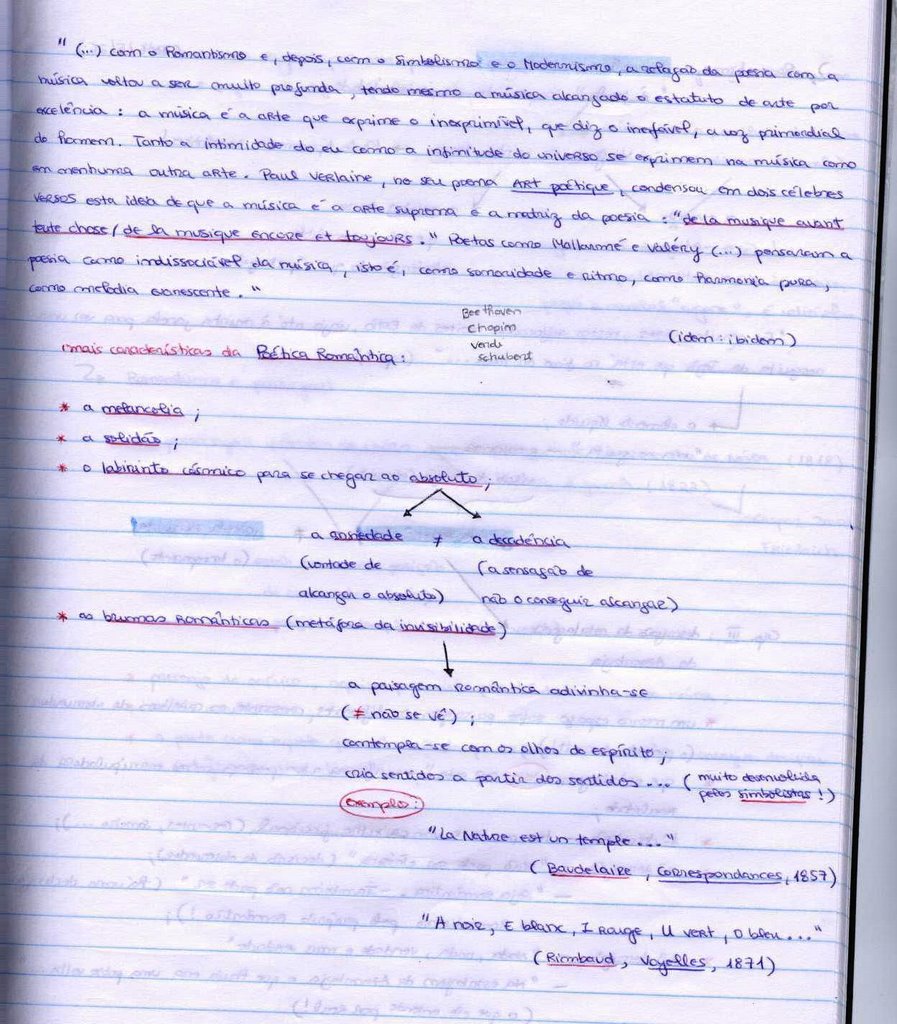 " (...) com o Romantismo e, depois, com o Simbolismo e o Modernismo, a relação da poesia com a
música voltou a ser muito profunda, tendo mesmo a música alcançado o estatuto de arte por
excelência: a música é a arte que exprime o inexprimível, que diz o inefável, a voz primordial
do homem. Tanto a intimidade do eu como a infinitude do universo se exprimem na música como
em nenhuma outra arte. Paul Verlaine, no seu poema ART poétique, condensou em dois célebres
versos esta ideia de que a música é a arte suprema e a matriz da poesia: "de la musique avant
toute chose / de la musique encore et toujours." Poetas como Mallarmé e Valéry (...) pensaram a
poesia como indissociável da música, isto é, como sonoridade e ritmo, como harmonia pura,
como melodia evanescente."
Beethoven
Chopin
Verdi
Schubert
(idem: ibidem)
mais características da Poética Romântica:
* a melancolia;
* a solidão;
* o labirinto cósmico para se chegar ao absoluto;
a ansiedade ≠ a decadência
(vontade de (a sensação de
alcançar o absoluto) não o conseguir alcançar)
* as brumas Românticas (metáfora da invisibilidade)
a paisagem Romântica adivinha-se
(≠ não se vê);
contempla-se com os olhos do espírito;
cria sentidos a partir dos sentidos... (muito desenvolvida
pelos simbolistas!)
exemplo:
"La Nature est un temple..."
(Baudelaire, Correspondances, 1857)
"A noir, E blanc, I Rouge, U vert, O bleu..."
(Rimbaud, Voyelles, 1871)